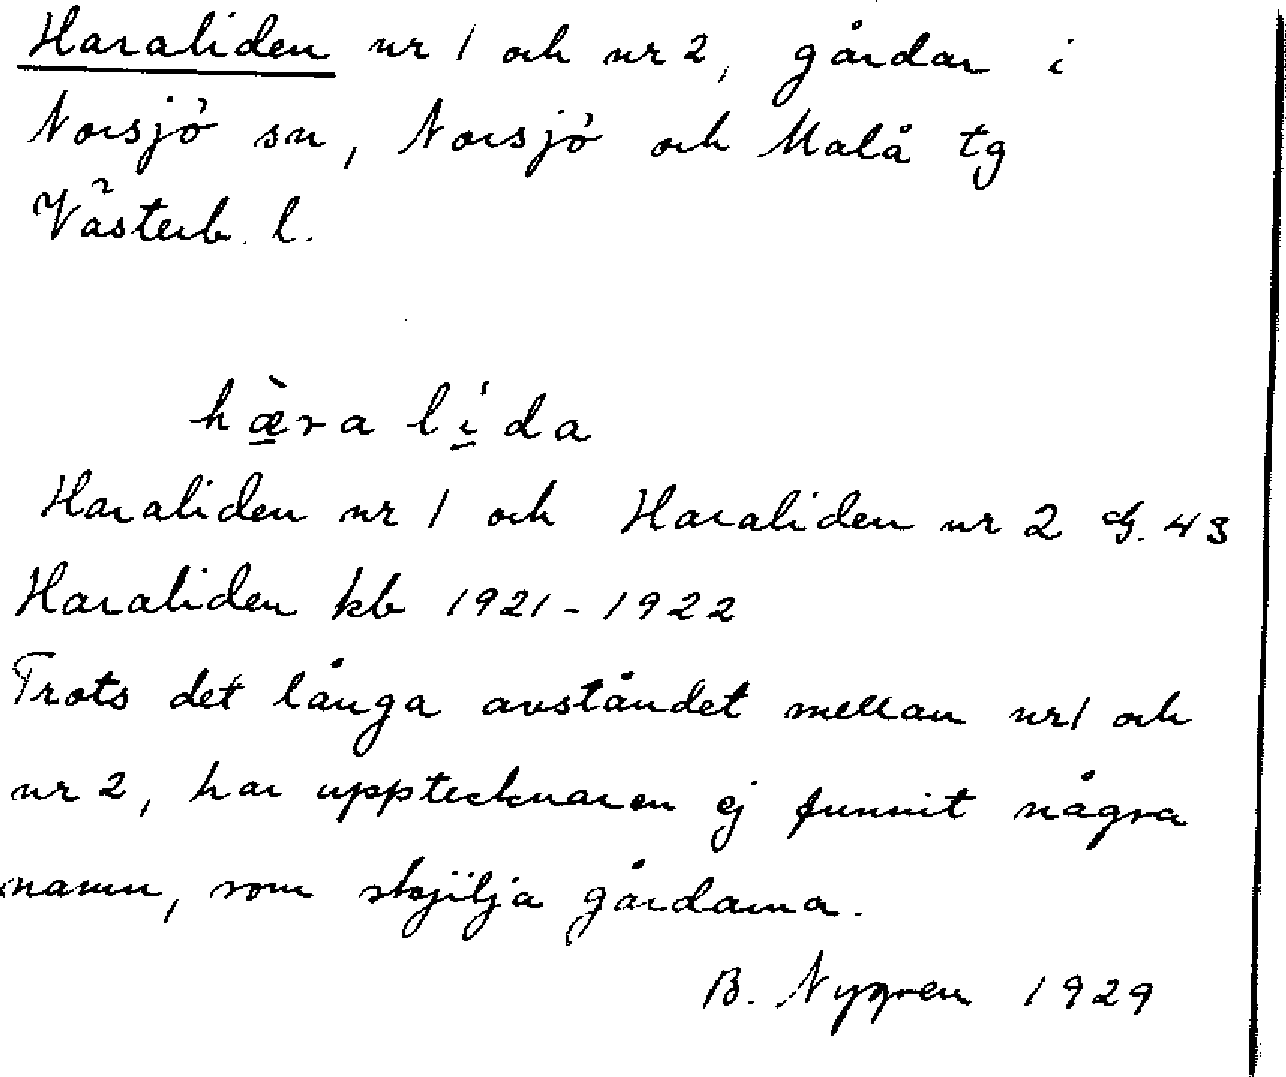 Haraliden nr 1 och nr 2, gårdar i
Norsjö sn, Norsjö och Malå tg
Västerb. l.
hæ̀ra lída
Haraliden nr 1 och Haraliden nr 2 G. 43
Haraliden kb 1921-1922
Trots det långa avståndet mellan nr 1 och
nr 2, har upptecknaren ej funnit några
namn, som skjilja gårdarna.
B. Nygren 1929